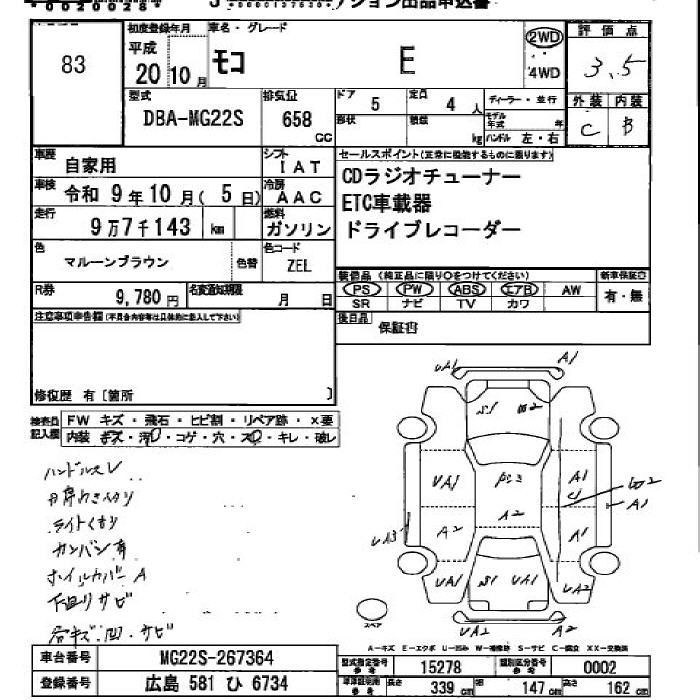 ション出品申込書
83
初度登録年月
平成
20 10 月
車名・グレード
モコ E
2WD
4WD
評価点
3.5
外装 内装
C B
型式
DBA-MG22S
排気量
658
cc
ドア 5
定員 4 人
形状
積載 kg
ディーラー・並行
モデル年式 年
ハンドル 左・右
車歴
自家用
シフト
IAT
車検
令和 9年10月( 5日)
冷房
AAC
走行
9万7千143 km
燃料
ガソリン
色
マルーンブラウン
色替
色コード
ZEL
R券
9,780 円
名変通知期限
月 日
セールスポイント(正常に機能するものに限ります)
CDラジオチューナー
ETC車載器
ドライブレコーダー
装備品(純正品に限り○をつけてください)
PS PW ABS エアB AW
SR ナビ TV カワ
新車保証書
有・無
後日品
保証書
注意事項申告欄(不具合内容等は具体的に記入して下さい)
修復歴 有〔箇所 〕
検査員記入欄
FW キズ・飛石・ヒビ割・リペア跡・×要
内装 キズ・汚・コゲ・穴・スレ・キレ・破レ
ハンドルスレ
ライトくもり
カンバン有
ホイルカバーA
下回りサビ
各キズ凹・サビ
UA1 A1
S1 W2
UA1 A1
W2
A1
A2 A2 A1
UA3
UA1 S1 UA1 UA2
UA2 A1
スペア
A-キズ E-エクボ U-凹み W-補修跡 S-サビ C-腐食 XX-交換済
車台番号
MG22S-267364
登録番号
広島 581 ひ 6734
型式指定番号
参考
15278
類別区分番号
参考
0002
長さ 339 cm
幅 147 cm
高さ 162 cm